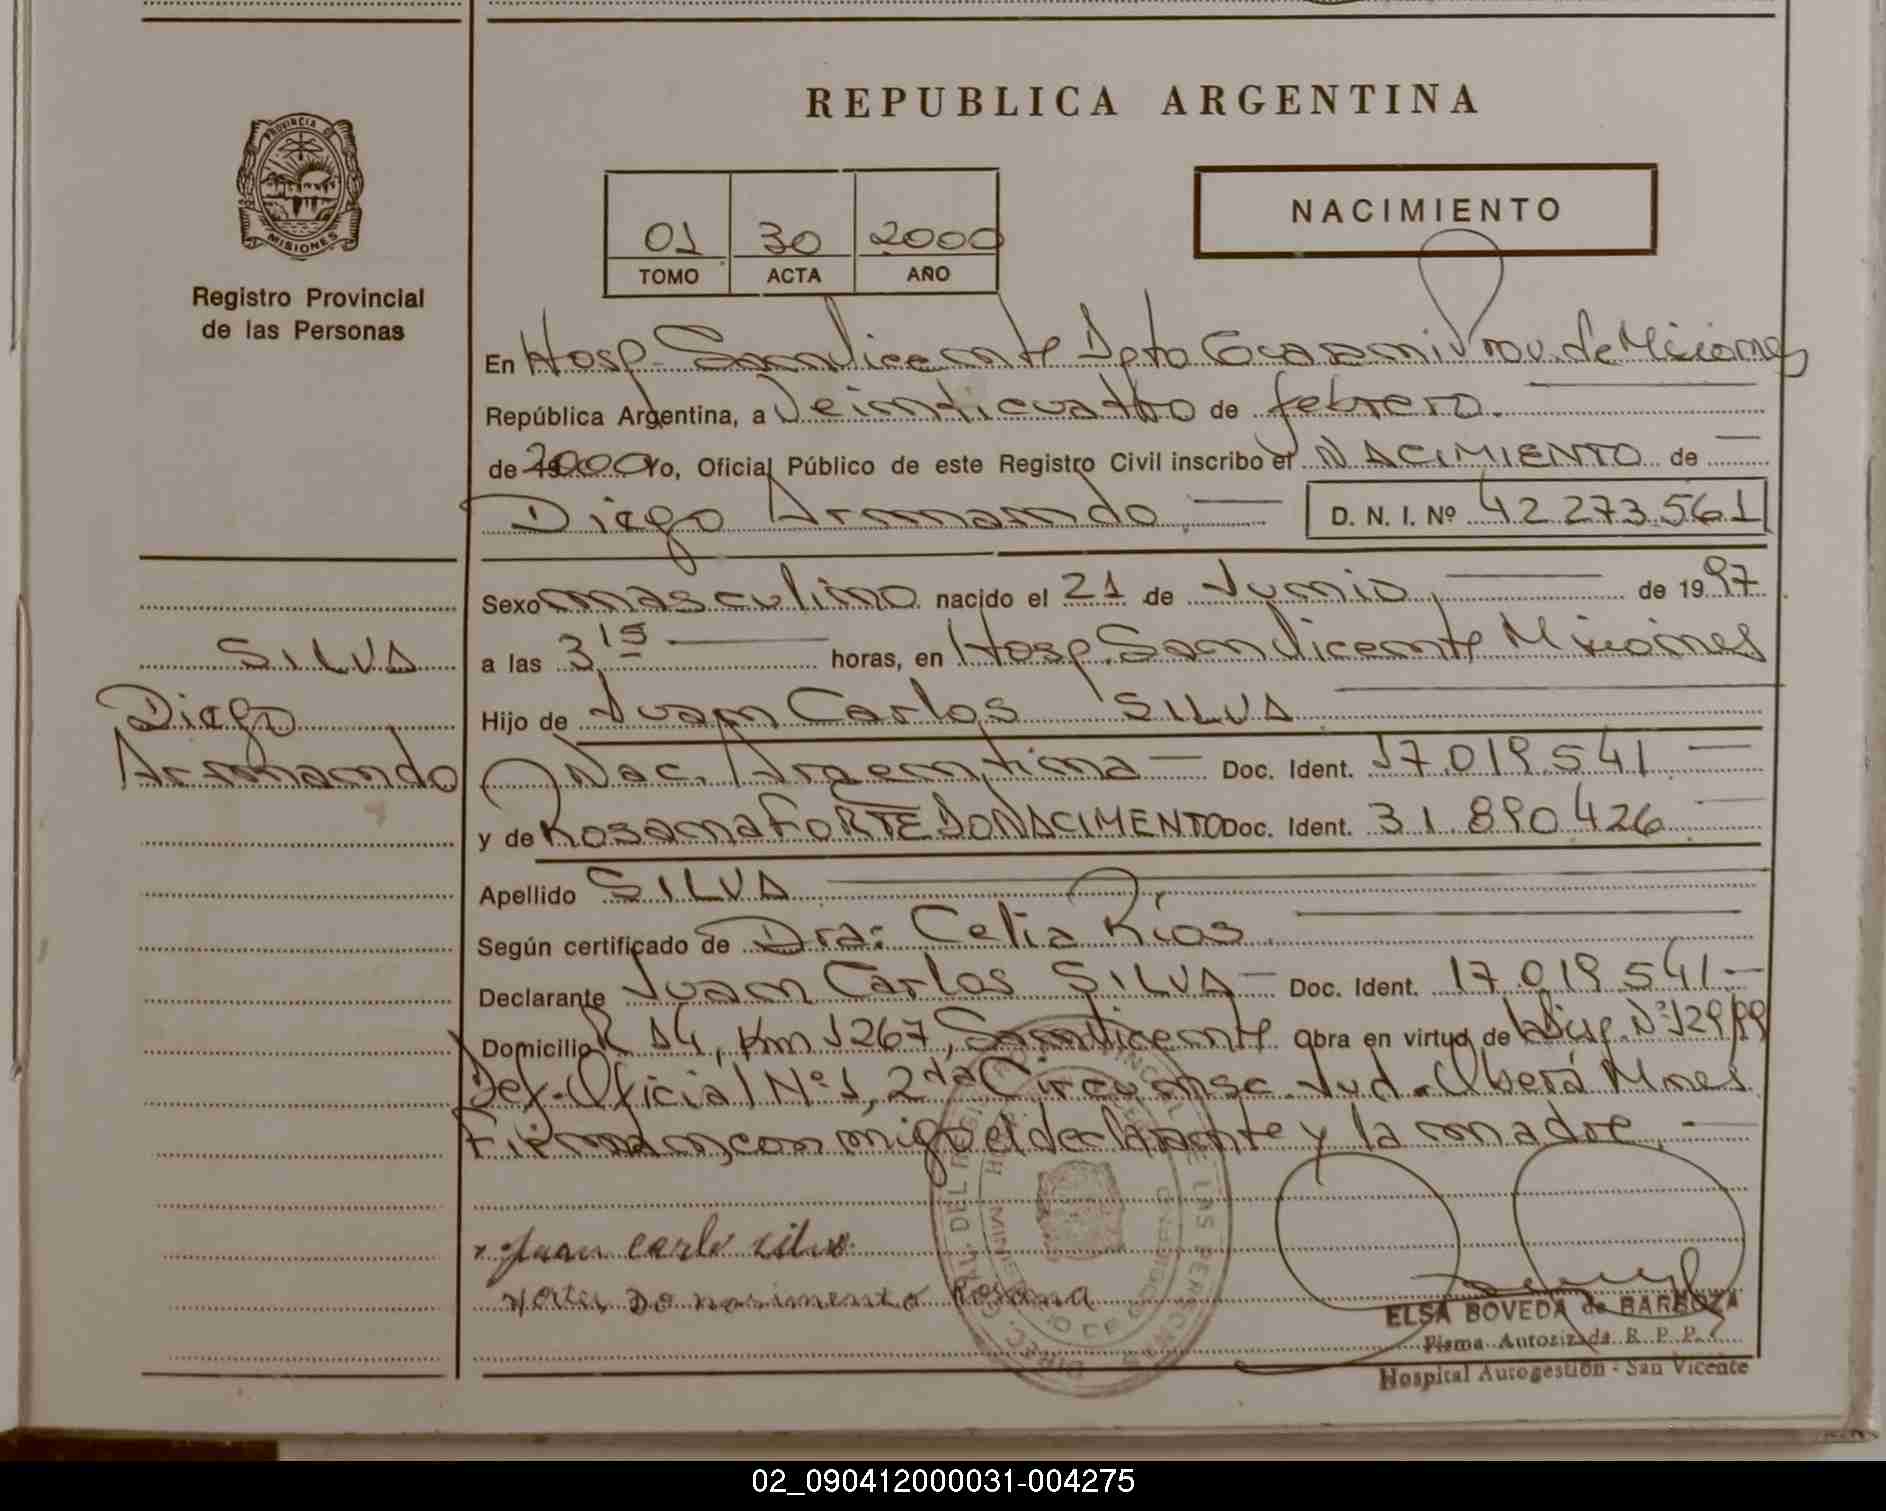 REPUBLICA ARGENTINA
PROVINCIA DE
MISIONES
Registro Provincial
de las Personas
01 30 2000
TOMO ACTA AÑO
NACIMIENTO
En Hosp. San Vicente Dpto Guaraní Prov. de Misiones
República Argentina, a Veinticuatro de febrero.
de 2000 Yo, Oficial Público de este Registro Civil inscribo el NACIMIENTO de
Diego Armando D. N. I. Nº 42 273.561
Sexo masculino nacido el 21 de Junio de 1997
a las 3 15 horas, en Hosp. San Vicente Misiones
Hijo de Juan Carlos SILVA
Nac. Argentina Doc. Ident. 17.019.541
y de Rosana FORTE DO NACIMENTO Doc. Ident. 31.890.426
Apellido SILVA
Según certificado de Dra: Celia Ríos
Declarante Juan Carlos SILVA Doc. Ident. 17.019.541
Domicilio R 14, Km 1267, San Vicente Obra en virtud de Nº 129/99
Def. Oficial Nº 1, 2da Circunsc. Jud. Oberá Mnes
Firman conmigo el declarante y la madre.
SILVA
Diego
Armando
x Juan carlo silva
do nasimento Rosana
ELSA BOVEDA de BARBOZA
Firma Autorizada R. P. P.
Hospital Autogestión - San Vicente
02_090412000031-004275